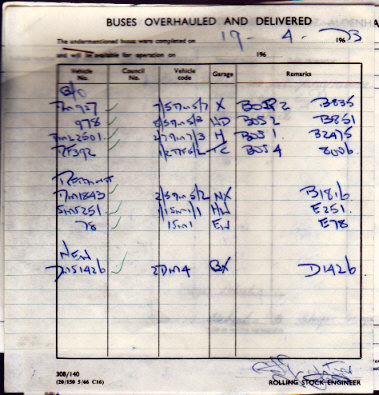 BUSES OVERHAULED AND DELIVERED
The undermentioned buses were completed on 19-4-73 196
and will be available for operation on 196
Vehicle No. Council No. Vehicle code Garage Remarks
O/O
RM927 ✓ 7/5RM5/7 X BOSR2 B835
978 ✓ 8/5RM5/3 BOS2 B851
RML2501 ✓ 2/7RM7/3 H BOS1. B2475
RF392 ✓ TC BOS4 8006.
RM1843 ✓ 2/5RM5/2 NX B1816
SMS251 ✓ 1/1SM1/1 E251.
78 ✓ 1SM1 EW E78
NEW
DMS1426 ✓ 2DM4 BX D1426
308/140
(20/150 5/66 C16)
ROLLING STOCK ENGINEER